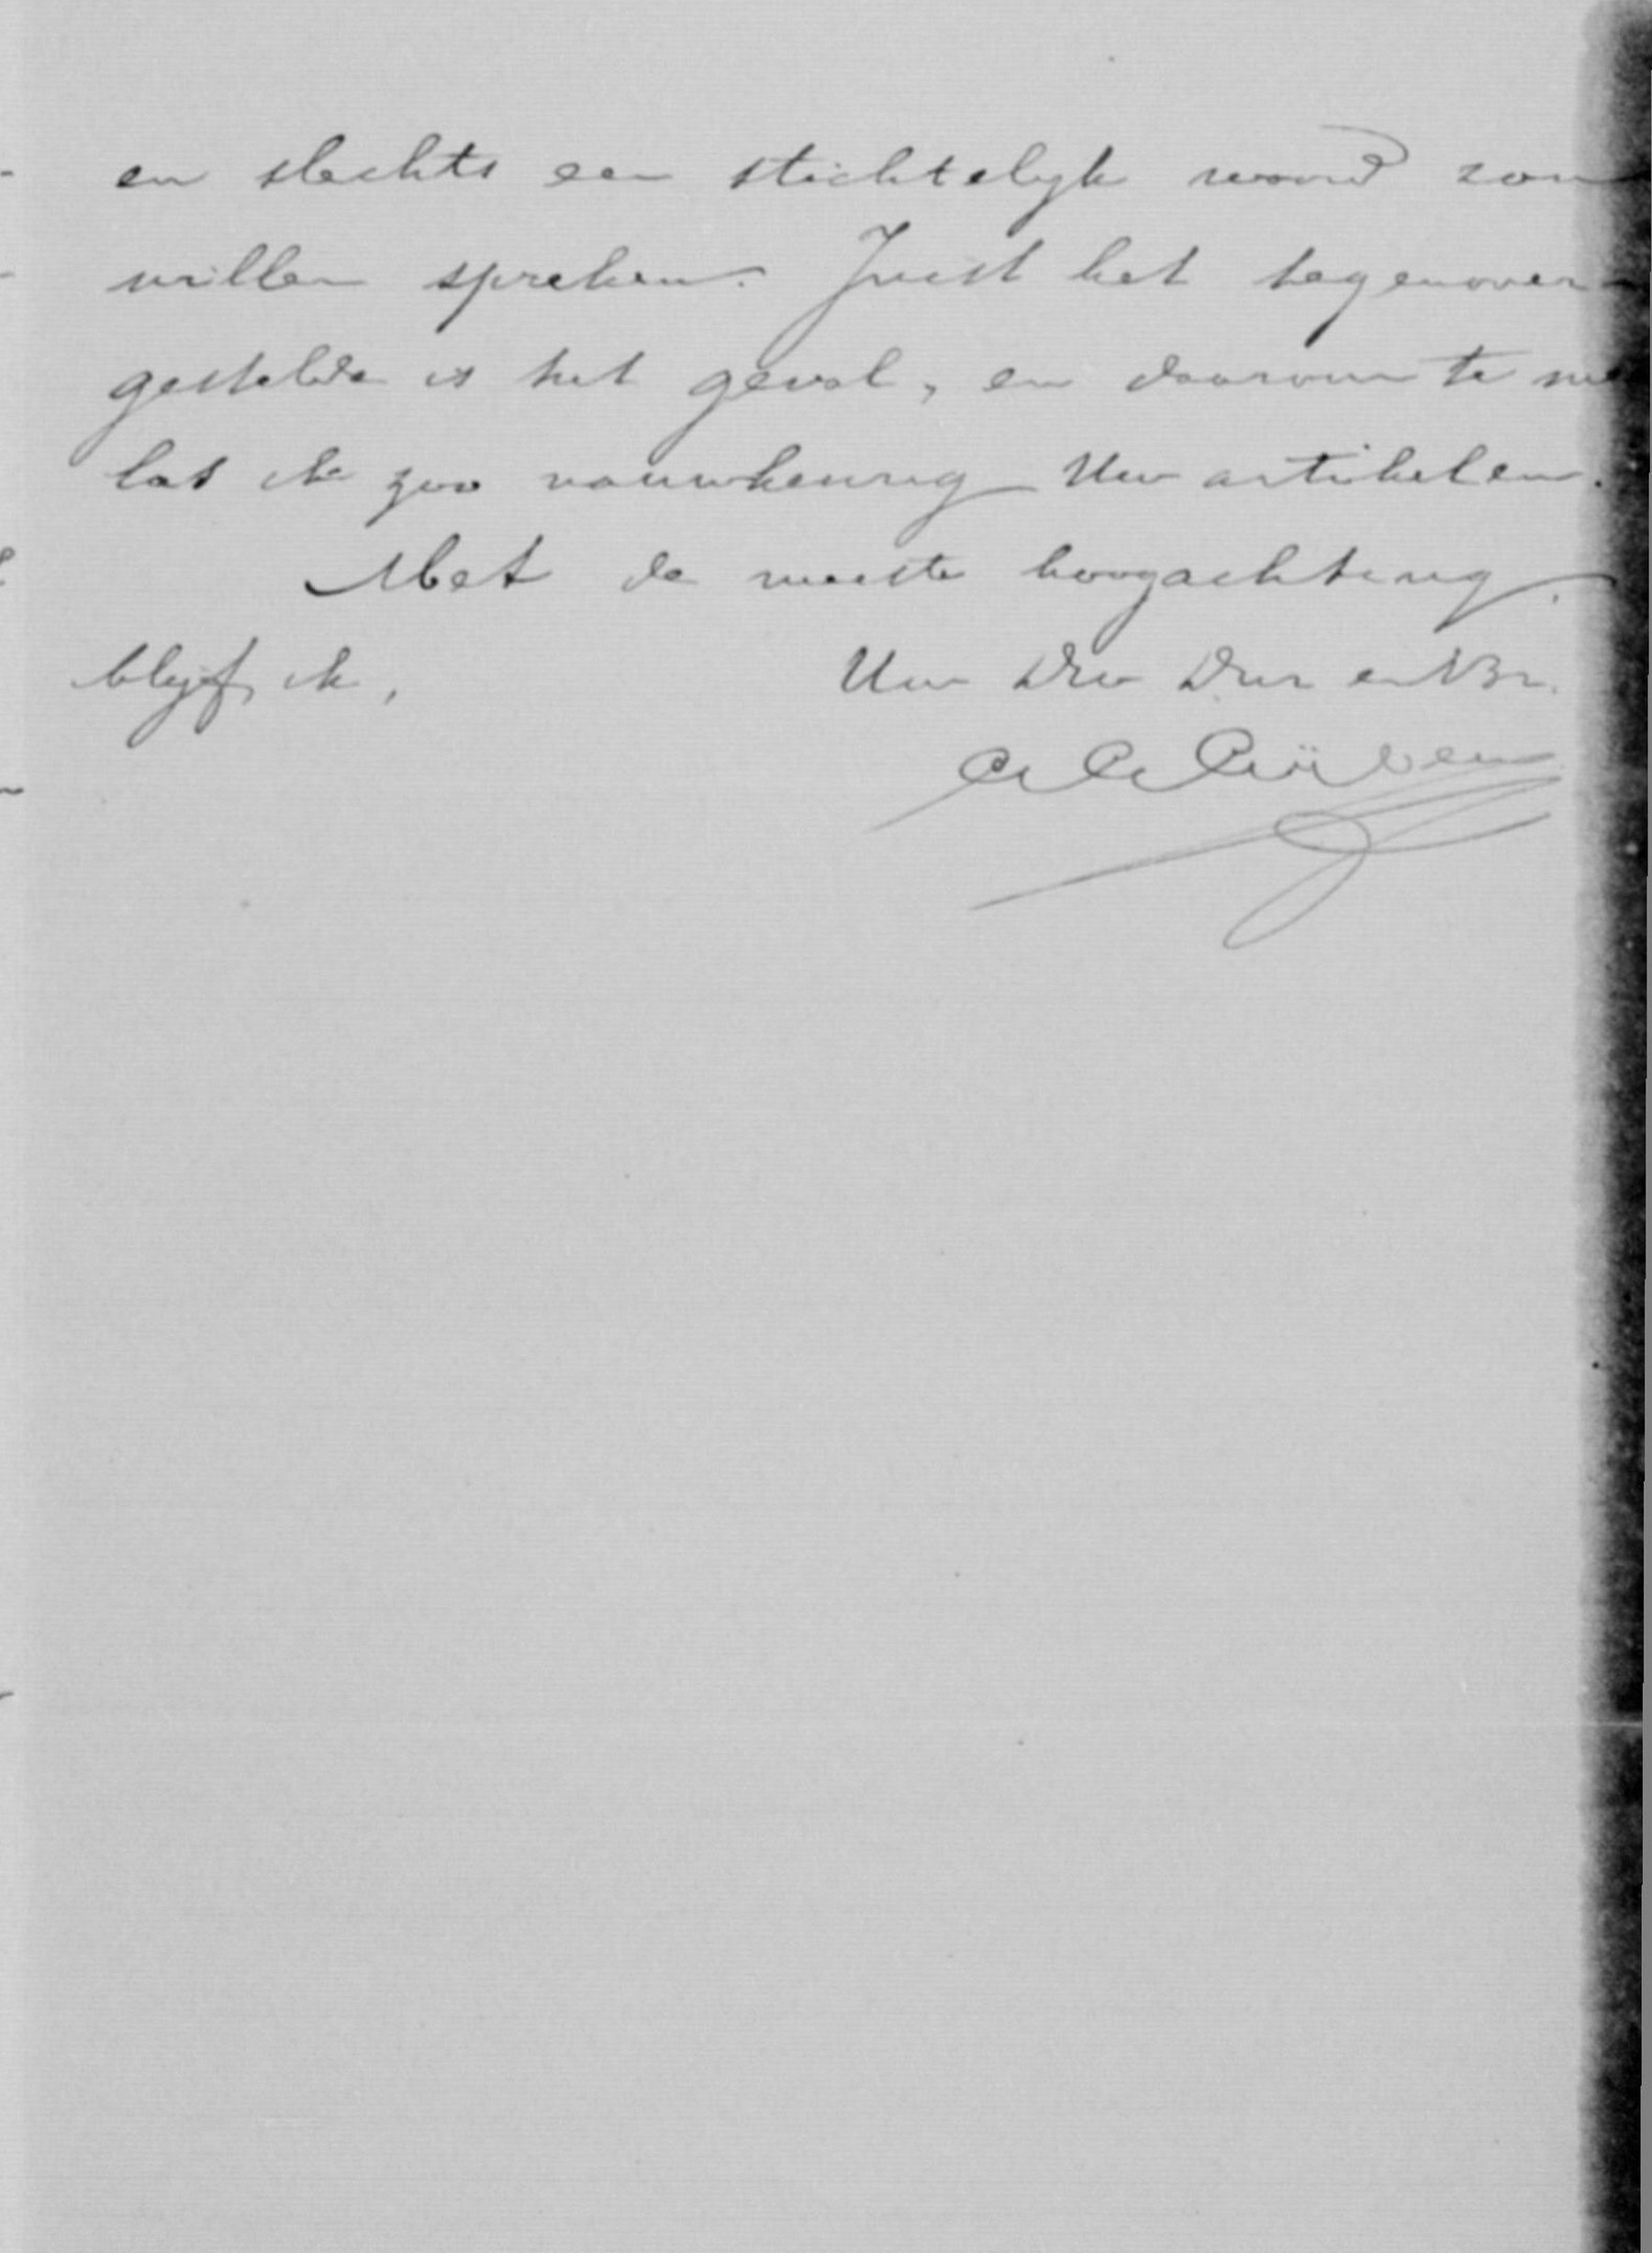 en slechts een stichtelijk woord zou
willen spreken. Juist het tegenover-
gestelde is het geval, en daarom te
las ik zoo nauwkeurig Uw artikelen.
Met de meeste hoogachting,
blijf ik, Uw Dw Dnr en Br.